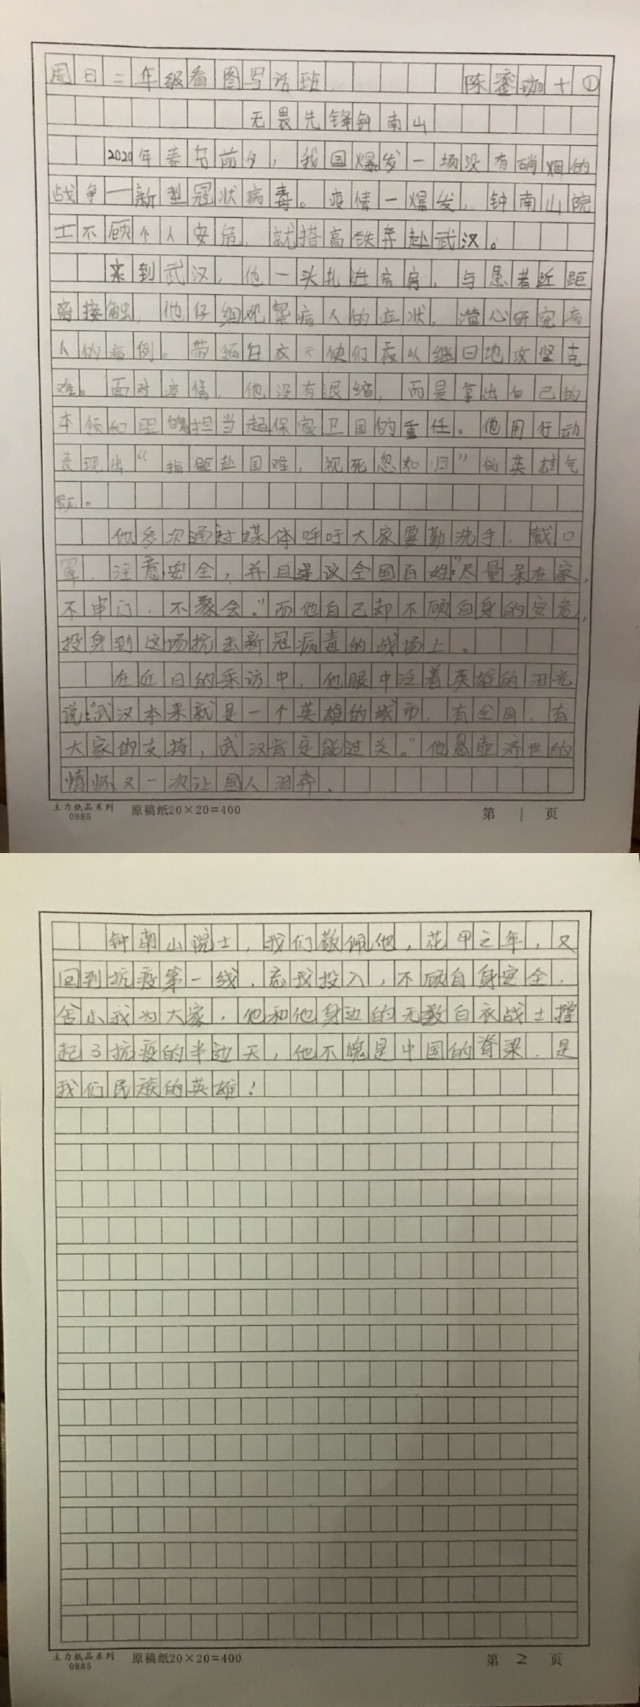 周日二年级看图写话班 陈珈十①
无畏先锋钟南山
2020年春节前夕，我国爆发一场没有硝烟的
战争—新型冠状病毒。疫情一爆发，钟南山院
士不顾个人安危，就搭高铁奔赴武汉。
来到武汉，他一头扎进病房，与患者近距
离接触，他仔细观察病人的症状，潜心研究病
人的病例。带领白衣天使们夜以继日地攻坚克
难。面对疫情，他没有退缩，而是拿出自己的
本领和胆魄担当起保家卫国的重任。他用行动
表现出“捐躯赴国难，视死忽如归”的英雄气
概。
他多次通过媒体呼吁大家要勤洗手，戴口
罩，注意安全，并且建议全国百姓“尽量呆在家，
不串门，不聚会。”而他自己却不顾自身的安危，
投身到这场抗击新冠病毒的战场上。
在近日的采访中，他眼中泛着英雄的泪光
说：“武汉本来就是一个英雄的城市，有全国、有
大家的支持，武汉肯定能过关。”他悬壶济世的
情怀又一次让国人泪奔。
主力纸品系列
0885 原稿纸20×20=400 第 1 页
钟南山院士，我们敬佩他，花甲之年，又
回到抗疫第一线，忘我投入，不顾自身安全，
舍小我为大家，他和他身边的无数白衣战士撑
起了抗疫的半边天，他不愧是中国的脊梁，是
我们民族的英雄！
主力纸品系列
0885 原稿纸20×20=400 第 2 页